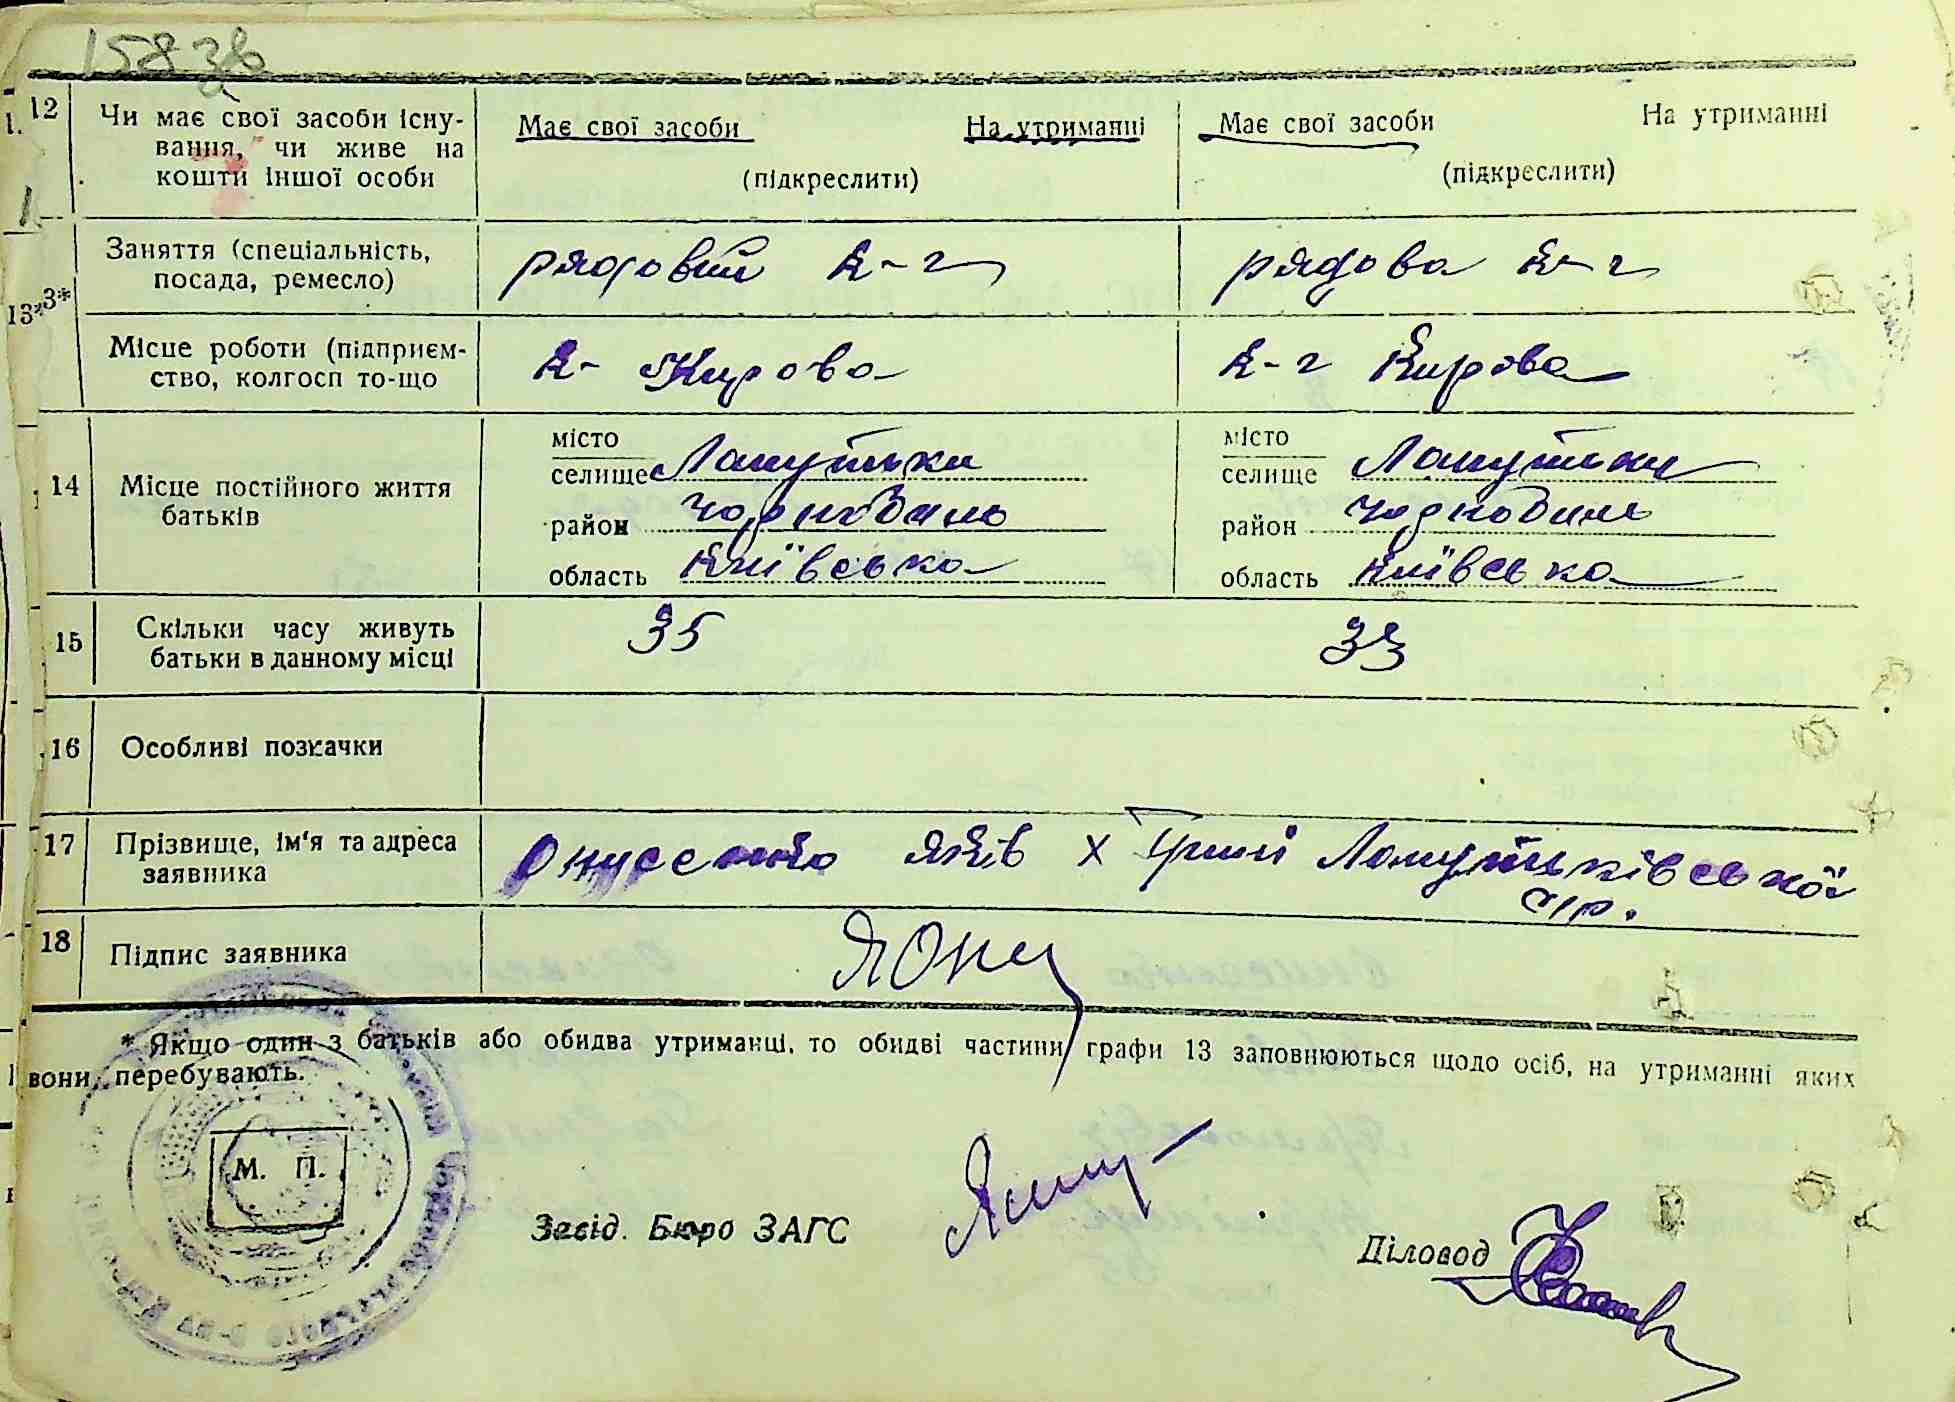 158 зв
12 Чи має свої засоби існу-
вання, чи живе на
кошти іншої особи
Має свої засоби На утриманні
(підкреслити)
Має свої засоби На утриманні
(підкреслити)
13* Заняття (спеціальність,
посада, ремесло)
рядовий к-г
рядова к-г
Місце роботи (підприєм-
ство, колгосп то-що
к- Кирова
к-г Кирова
14 Місце постійного життя
батьків
місто
селище Лопутьки
район Чорнобиль
область Київська
місто
селище Лопутьки
район Чорнобиль
область Київська
15 Скільки часу живуть
батьки в данному місці
35
33
16 Особливі позначки
17 Прізвище, ім'я та адреса
заявника
Онисенко Яків х Лопутьківської
с/р.
18 Підпис заявника
* Якщо один з батьків або обидва утриманці, то обидві частини графи 13 заповнюються щодо осіб, на утриманні яких
вони перебувають.
М. П.
Завід. Бюро ЗАГС
Діловод